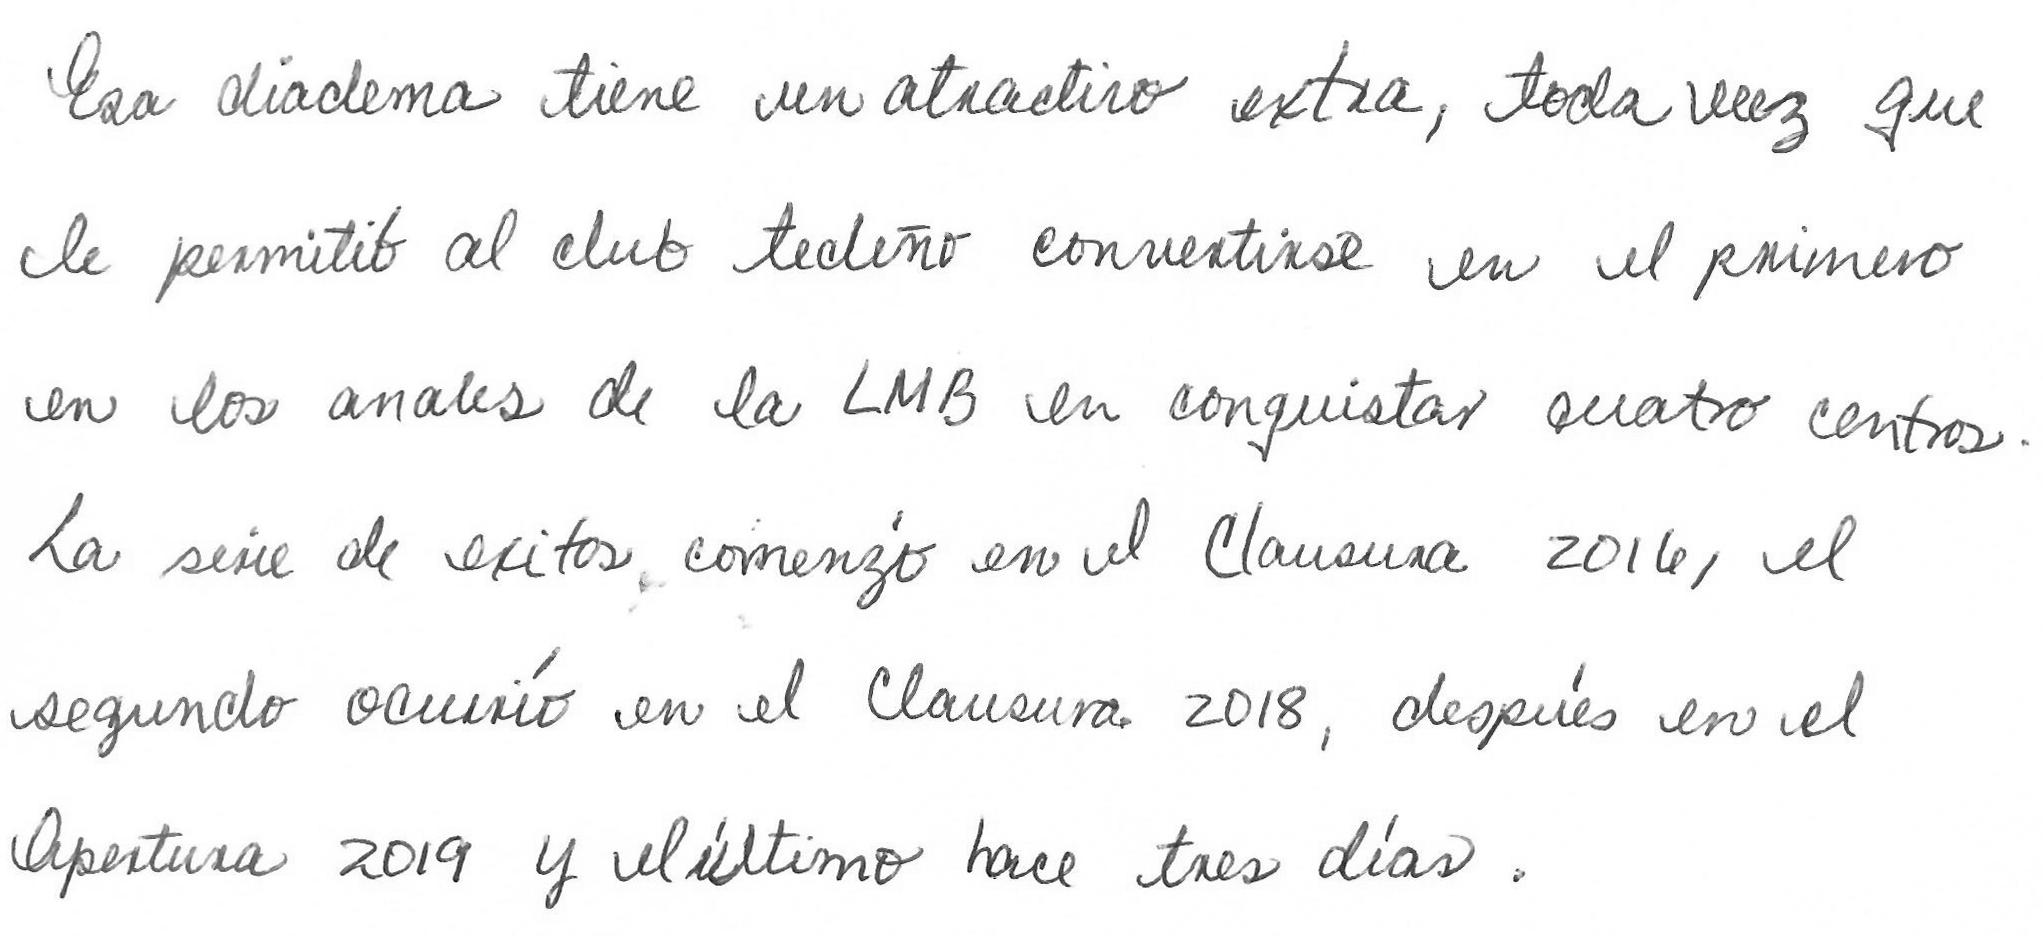 Esa diadema tiene un atractivo extra, toda vez que
le permitió al club tecleño convertirse en el primero
en los anales de la LMB en conquistar cuatro centros.
La serie de exitos comenzó en el Clausura 2016, el
segundo ocurrió en el Clausura 2018, después en el
Apertura 2019 y el último hace tres días.